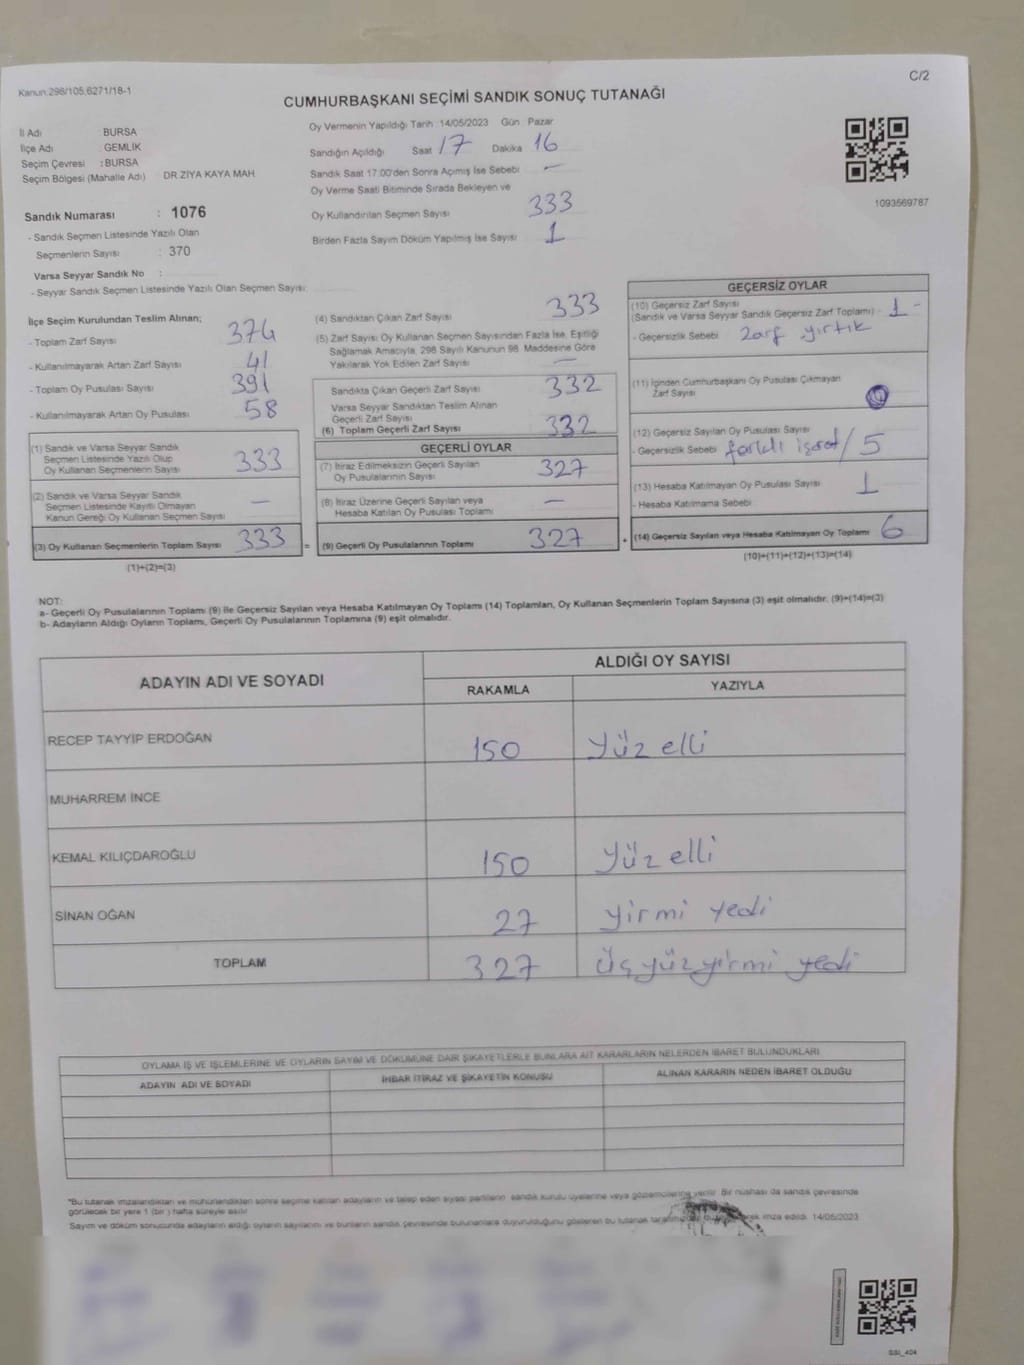 Kanun.298/105,6271/18-1
C/2
CUMHURBAŞKANI SEÇİMİ SANDIK SONUÇ TUTANAĞI
İl Adı : BURSA
İlçe Adı : GEMLİK
Seçim Çevresi : BURSA
Seçim Bölgesi (Mahalle Adı) DR.ZİYA KAYA MAH.
Sandık Numarası : 1076
- Sandık Seçmen Listesinde Yazılı Olan
Seçmenlerin Sayısı : 370
Varsa Seyyar Sandık No :
- Seyyar Sandık Seçmen Listesinde Yazılı Olan Seçmen Sayısı:
Oy Vermenin Yapıldığı Tarih :14/05/2023 Gün Pazar
Sandığın Açıldığı Saat 17 Dakika 16
Sandık Saat 17:00'den Sonra Açımış İse Sebebi : —
Oy Verme Saati Bitiminde Sırada Bekleyen ve
Oy Kullandırılan Seçmen Sayısı 333
Birden Fazla Sayım Döküm Yapılmış İse Sayısı 1
1093569787
İlçe Seçim Kurulundan Teslim Alınan;
- Toplam Zarf Sayısı 374
- Kullanılmayarak Artan Zarf Sayısı 41
- Toplam Oy Pusulası Sayısı 391
- Kullanılmayarak Artan Oy Pusulası 58
(1) Sandık ve Varsa Seyyar Sandık
Seçmen Listesinde Yazılı Olup
Oy Kullanan Seçmenlerin Sayısı 333
(2) Sandık ve Varsa Seyyar Sandık
Seçmen Listesinde Kayıtlı Olmayan
Kanun Gereği Oy Kullanan Seçmen Sayısı —
(3) Oy Kullanan Seçmenlerin Toplam Sayısı 333 =
(1)+(2)=(3)
(4) Sandıktan Çıkan Zarf Sayısı 333
(5) Zarf Sayısı Oy Kullanan Seçmen Sayısından Fazla İse, Eşitliği
Sağlamak Amacıyla, 298 Sayılı Kanunun 98. Maddesine Göre
Yakılarak Yok Edilen Zarf Sayısı —
Sandıkta Çıkan Geçerli Zarf Sayısı 332
Varsa Seyyar Sandıktan Teslim Alınan
Geçerli Zarf Sayısı
(6) Toplam Geçerli Zarf Sayısı 332
GEÇERLİ OYLAR
(7) İtiraz Edilmeksizin Geçerli Sayılan
Oy Pusulalarının Sayısı 327
(8) İtiraz Üzerine Geçerli Sayılan veya
Hesaba Katılan Oy Pusulası Toplamı —
(9) Geçerli Oy Pusulalarının Toplamı 327 +
GEÇERSİZ OYLAR
(10) Geçersiz Zarf Sayısı
(Sandık ve Varsa Seyyar Sandık Geçersiz Zarf Toplamı) - 1 -
- Geçersizlik Sebebi zarf yırtık
(11) İçinden Cumhurbaşkanı Oy Pusulası Çıkmayan
Zarf Sayısı
(12) Geçersiz Sayılan Oy Pusulası Sayısı
- Geçersizlik Sebebi farklı işaret / 5
(13) Hesaba Katılmayan Oy Pusulası Sayısı 1
- Hesaba Katılmama Sebebi
(14) Geçersiz Sayılan veya Hesaba Katılmayan Oy Toplamı 6
(10)+(11)+(12)+(13)=(14)
NOT:
a- Geçerli Oy Pusulalarının Toplamı (9) ile Geçersiz Sayılan veya Hesaba Katılmayan Oy Toplamı (14) Toplamları, Oy Kullanan Seçmenlerin Toplam Sayısına (3) eşit olmalıdır. (9)+(14)=(3)
b- Adayların Aldığı Oyların Toplamı, Geçerli Oy Pusulalarının Toplamına (9) eşit olmalıdır.
ADAYIN ADI VE SOYADI ALDIĞI OY SAYISI
RAKAMLA YAZIYLA
RECEP TAYYİP ERDOĞAN 150 yüz elli
MUHARREM İNCE
KEMAL KILIÇDAROĞLU 150 yüz elli
SİNAN OĞAN 27 yirmi yedi
TOPLAM 327 üçyüzyirmi yedi
OYLAMA İŞ VE İŞLEMLERİNE VE OYLARIN SAYIM VE DÖKÜMÜNE DAİR ŞİKAYETLERLE BUNLARA AİT KARARLARIN NELERDEN İBARET BULUNDUKLARI
ADAYIN ADI VE SOYADI İHBAR İTİRAZ VE ŞİKAYETİN KONUSU ALINAN KARARIN NEDEN İBARET OLDUĞU
*Bu tutanak imzalandıktan ve mühürlendikten sonra seçime katılan adayların ve talep eden siyasi partilerin sandık kurulu üyelerine veya gözlemcilerine verilir. Bir nüshası da sandık çevresinde
görülecek bir yere 1 (bir) hafta süreyle asılır
Sayım ve döküm sonucunda adayların aldığı oyların sayılarını ve bunların sandık çevresinde bulunanlara duyurulduğunu gösteren bu tutanak imza edildi. 14/05/2023
SSİ_404